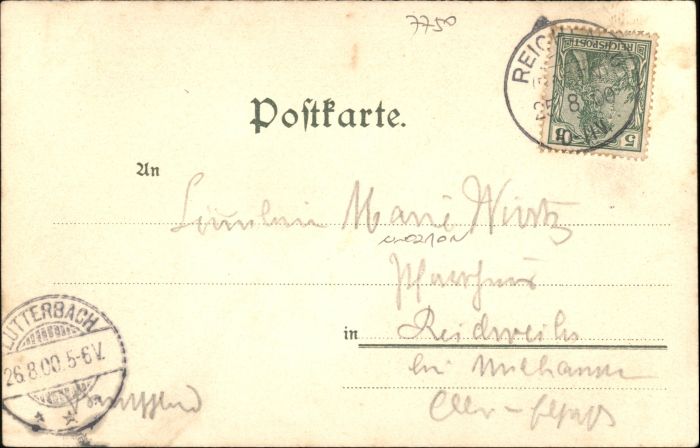 7750
REICH
25 8 00
REICHSPOST
5
Postkarte.
An
Fräulein Marie Wirtz
Pfarrhaus
in Reichweiler
bei Mülhausen
Ober-Elsaß
LUTTERBACH
26.8.00.5-6V.